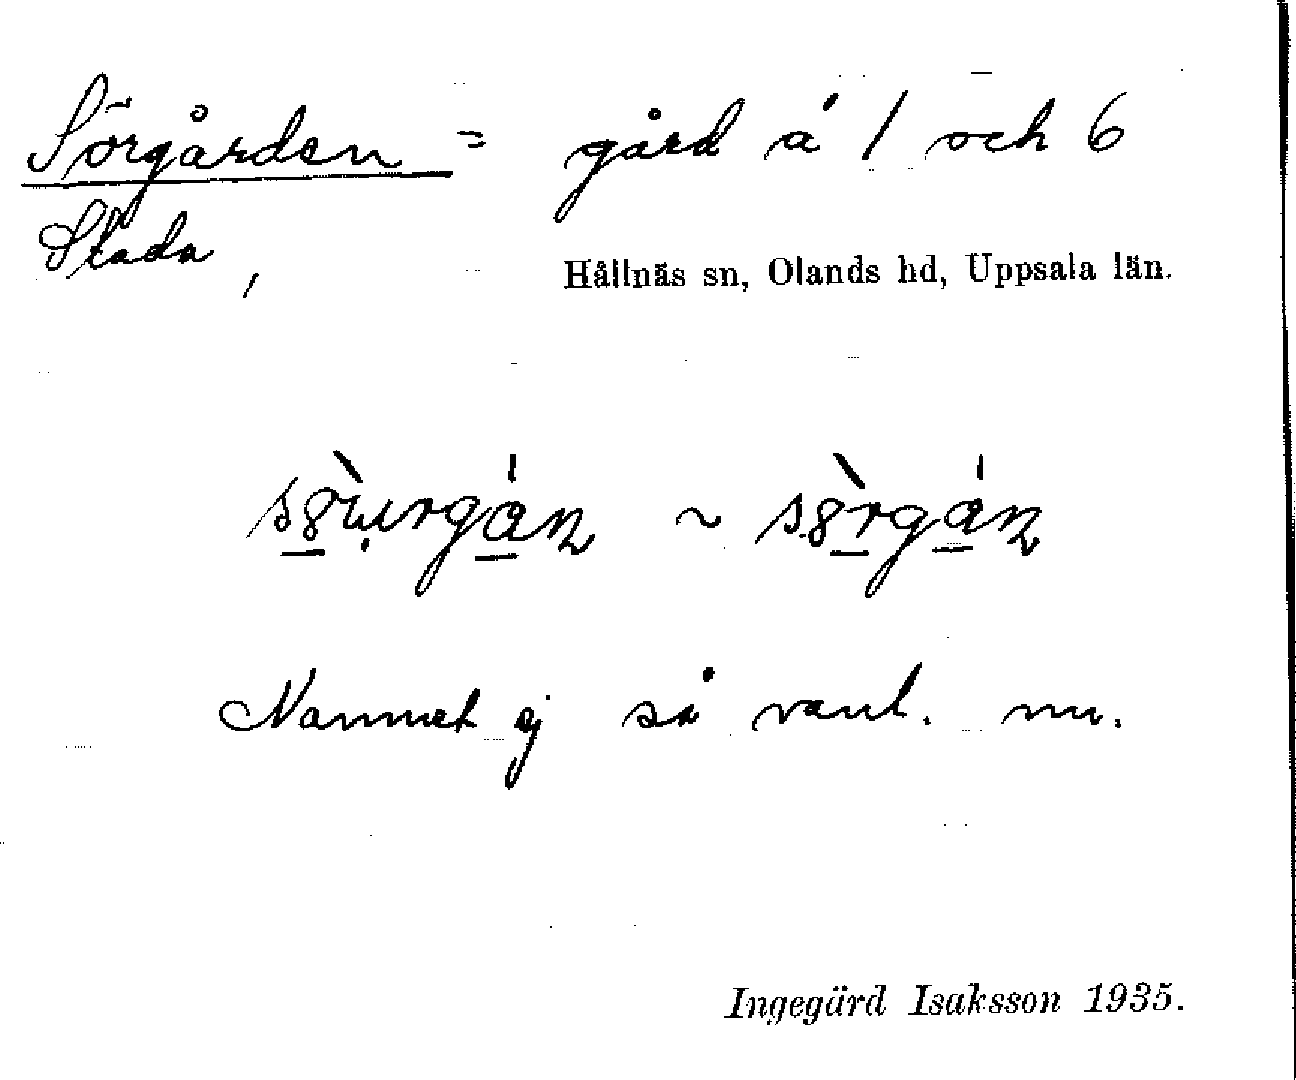 Sörgården = gård å 1 och 6
Slada,
Hållnäs sn, Olands hd, Uppsala län.
Namnet ej så vanl. nu.
Ingegärd Isaksson 1935.